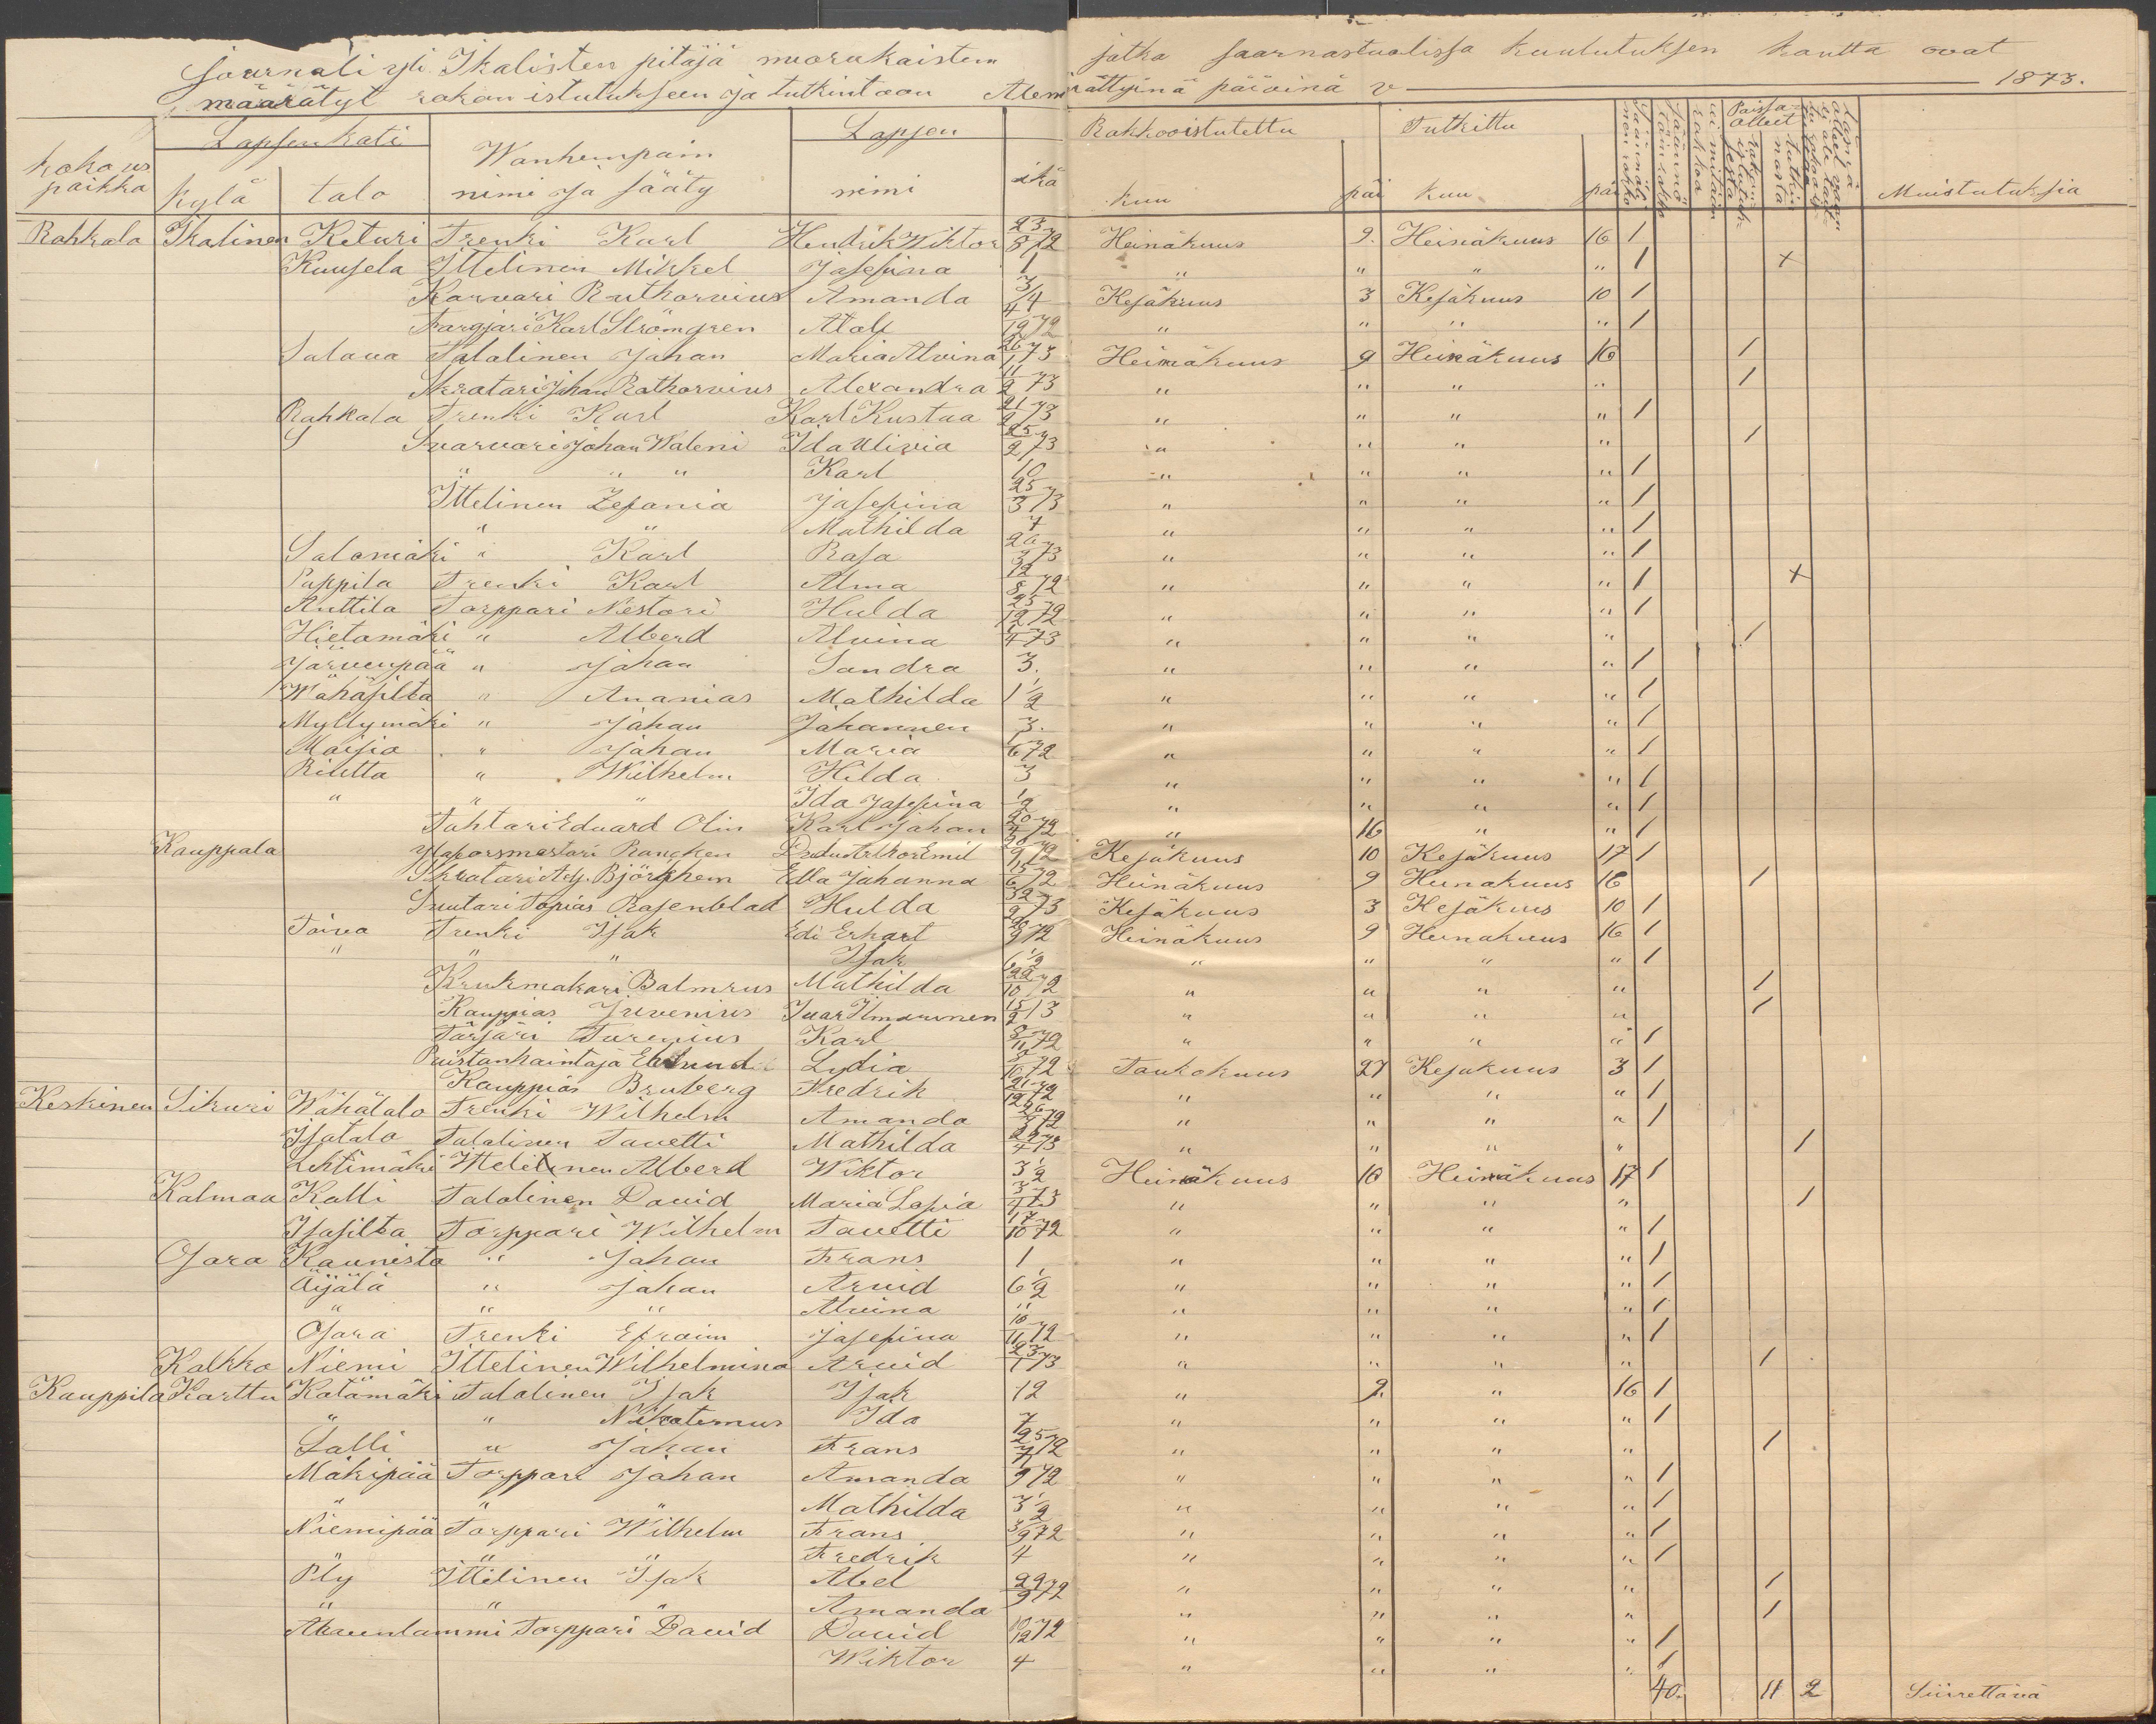 Journali yli Ikalisten pitäjä nuorukaisten jotka saarnastuolissa kuulutuksen kautta ovat
määrätyt rokon istutukseen ja tutkintoon Alem rättyinä päivinä v 1873.
kokous paikka Lapsen koti Wanhempain nimi ja sääty Lapsen Rokkooistutettu Tutkittu Poissa olleet Muistutuksia
kylä talo nimi ikä kuu päi kuu päi
Rahkala Ikalinen Keturi Trenki Karl Hendrik Wiktor 23/8 72 Heinäkuus 9. Heinäkuus 16 1
Kuusela Ittelinen Mikkel Josefina 1 " " " " 1 x
Karvari Ruthorvius Amanda 3/4 Kesäkuus 3 Kesäkuus 10 1
Fargjari Karl Strömgren Atolf 4/12 72 " " " " 1
Salava Talolinen Johan Maria Alvina 26/1 73 Heinäkuus 9 Heinäkuus 16 1
Skratari Johan Rathorvius Alexandra 11/2 73 " " " " 1
Rahkala Trenki Karl Karl Kustaa 21/2 73 " " " " 1
S Svarvari Johan Waleni Ida Ulivia 25/2 73 " " " " 1
" " " Karl 10 " " " " 1
Ittelinen Zefania Josefina 25/3 73 " " " " 1
" " Mathilda 7 " " " " 1
Salomäki " Karl Rosa 26/3 73 " " " " 1
Pappila Trenki Karl Alma 12/8 72 " " " " 1 x
Anttila Torppari Nestori Hulda 25/12 72 " " " " 1
Hietamäki " Alberd Alvina 1/4 73 " " " " 1
Järvenpää " Johan Sandra 3. " " " " 1
Wähäsilta " Ananias Mathilda 1 1/2 " " " " 1
Myllymäki " Johan Johannen 3. " " " " 1
Maisio " Johan Maria 1/6 72 " " " " 1
Rihtta " Wilhelm Hilda 3 " " " " 1
" " " Ida Josefina 1/2 " " " " 1
Tahtari Eduard Olin Karl Johan 20/4 72 " 16 " " 1
Kauppala Maporsmestari Rancken Arthor Emil 30/9 72 Kesäkuus 10 Kesäkuus 17 1
Skratari Adg. Björkhem Ella Johanna 15/6 72 Heinäkuus 9 Heinäkuus 16 1
Suutari Topias Rosenblad Hulda 2 73 Kesäkuus 3 Kesäkuus 10 1
Toivo Trenki Isak Edi Erhart 28/9 72 Heinäkuus 9 Heinäkuus 16 1
" " " Isak 6 1/2 " " " " 1
Krukmakari Balmrus Mathilda 22/10 72 " " " " 1
Kauppias Juvenius Ivar Ilmarinen 15/2 73 " " " " 1
Färjäri Turenius Karl 8/11 72 " " " " 1
Puistanhaintaja Eklund Lydia 8/10 72 Toukokuus 27 Kesäkuus 3 1
Kauppias Bruberg Fredrik 21/12 72 " " " " 1
Keskinen Sikuri Wähätalo Trenki Wilhelm Amanda 26/3 72 " " " " 1
Isotalo Talolinen Tavetti Mathilda 22/4 73 " " " " 1
Lehtimäki Ittelinen Alberd Wiktor 3 1/2 Heinäkuus 10 Heinäkuus 17 1
Kalmaa Kalli Talolinen David Maria Sofia 3/4 73 " " " " 1
Isosilta Torppari Wilhelm Tavetti 17/10 72 " " " " 1
Osara Kaunisto " Johan Frans 1 " " " " 1
Äijälä " Johan Arvid 6 1/2 " " " " 1
" " " Alvina " " " " " 1
Osara Trenki Efraim Josefina 10/11 72 " " " " 1
Kalkko Niemi Ittelinen Wilhelmina Arvid 23/1 73 " " " " 1
Kauppila Karttu Kotämäki Talolinen Isak Isak 12 " 9. " 16 1
" " Nikotemus Ida 7 " " " " 1
Lalli " Johan Frans 25/7 72 " " " " 1
Mäkipää Torppari Johan Amanda 9 72 " " " " 1
" " " Mathilda 3 1/2 " " " " 1
Niemipää Torppari Wilhelm Frans 3/9 72 " " " " 1
" " Fredrik 4 " " " " 1
Ply Ittelinen Isak Abel 22/9 72 " " " " 1
" " " Amanda " " " " 1
Ahvenlammi Torppari David David 10/12 72 " " " " 1
Wiktor 4 " " " " 1
40. 11 2 Siirrettävä